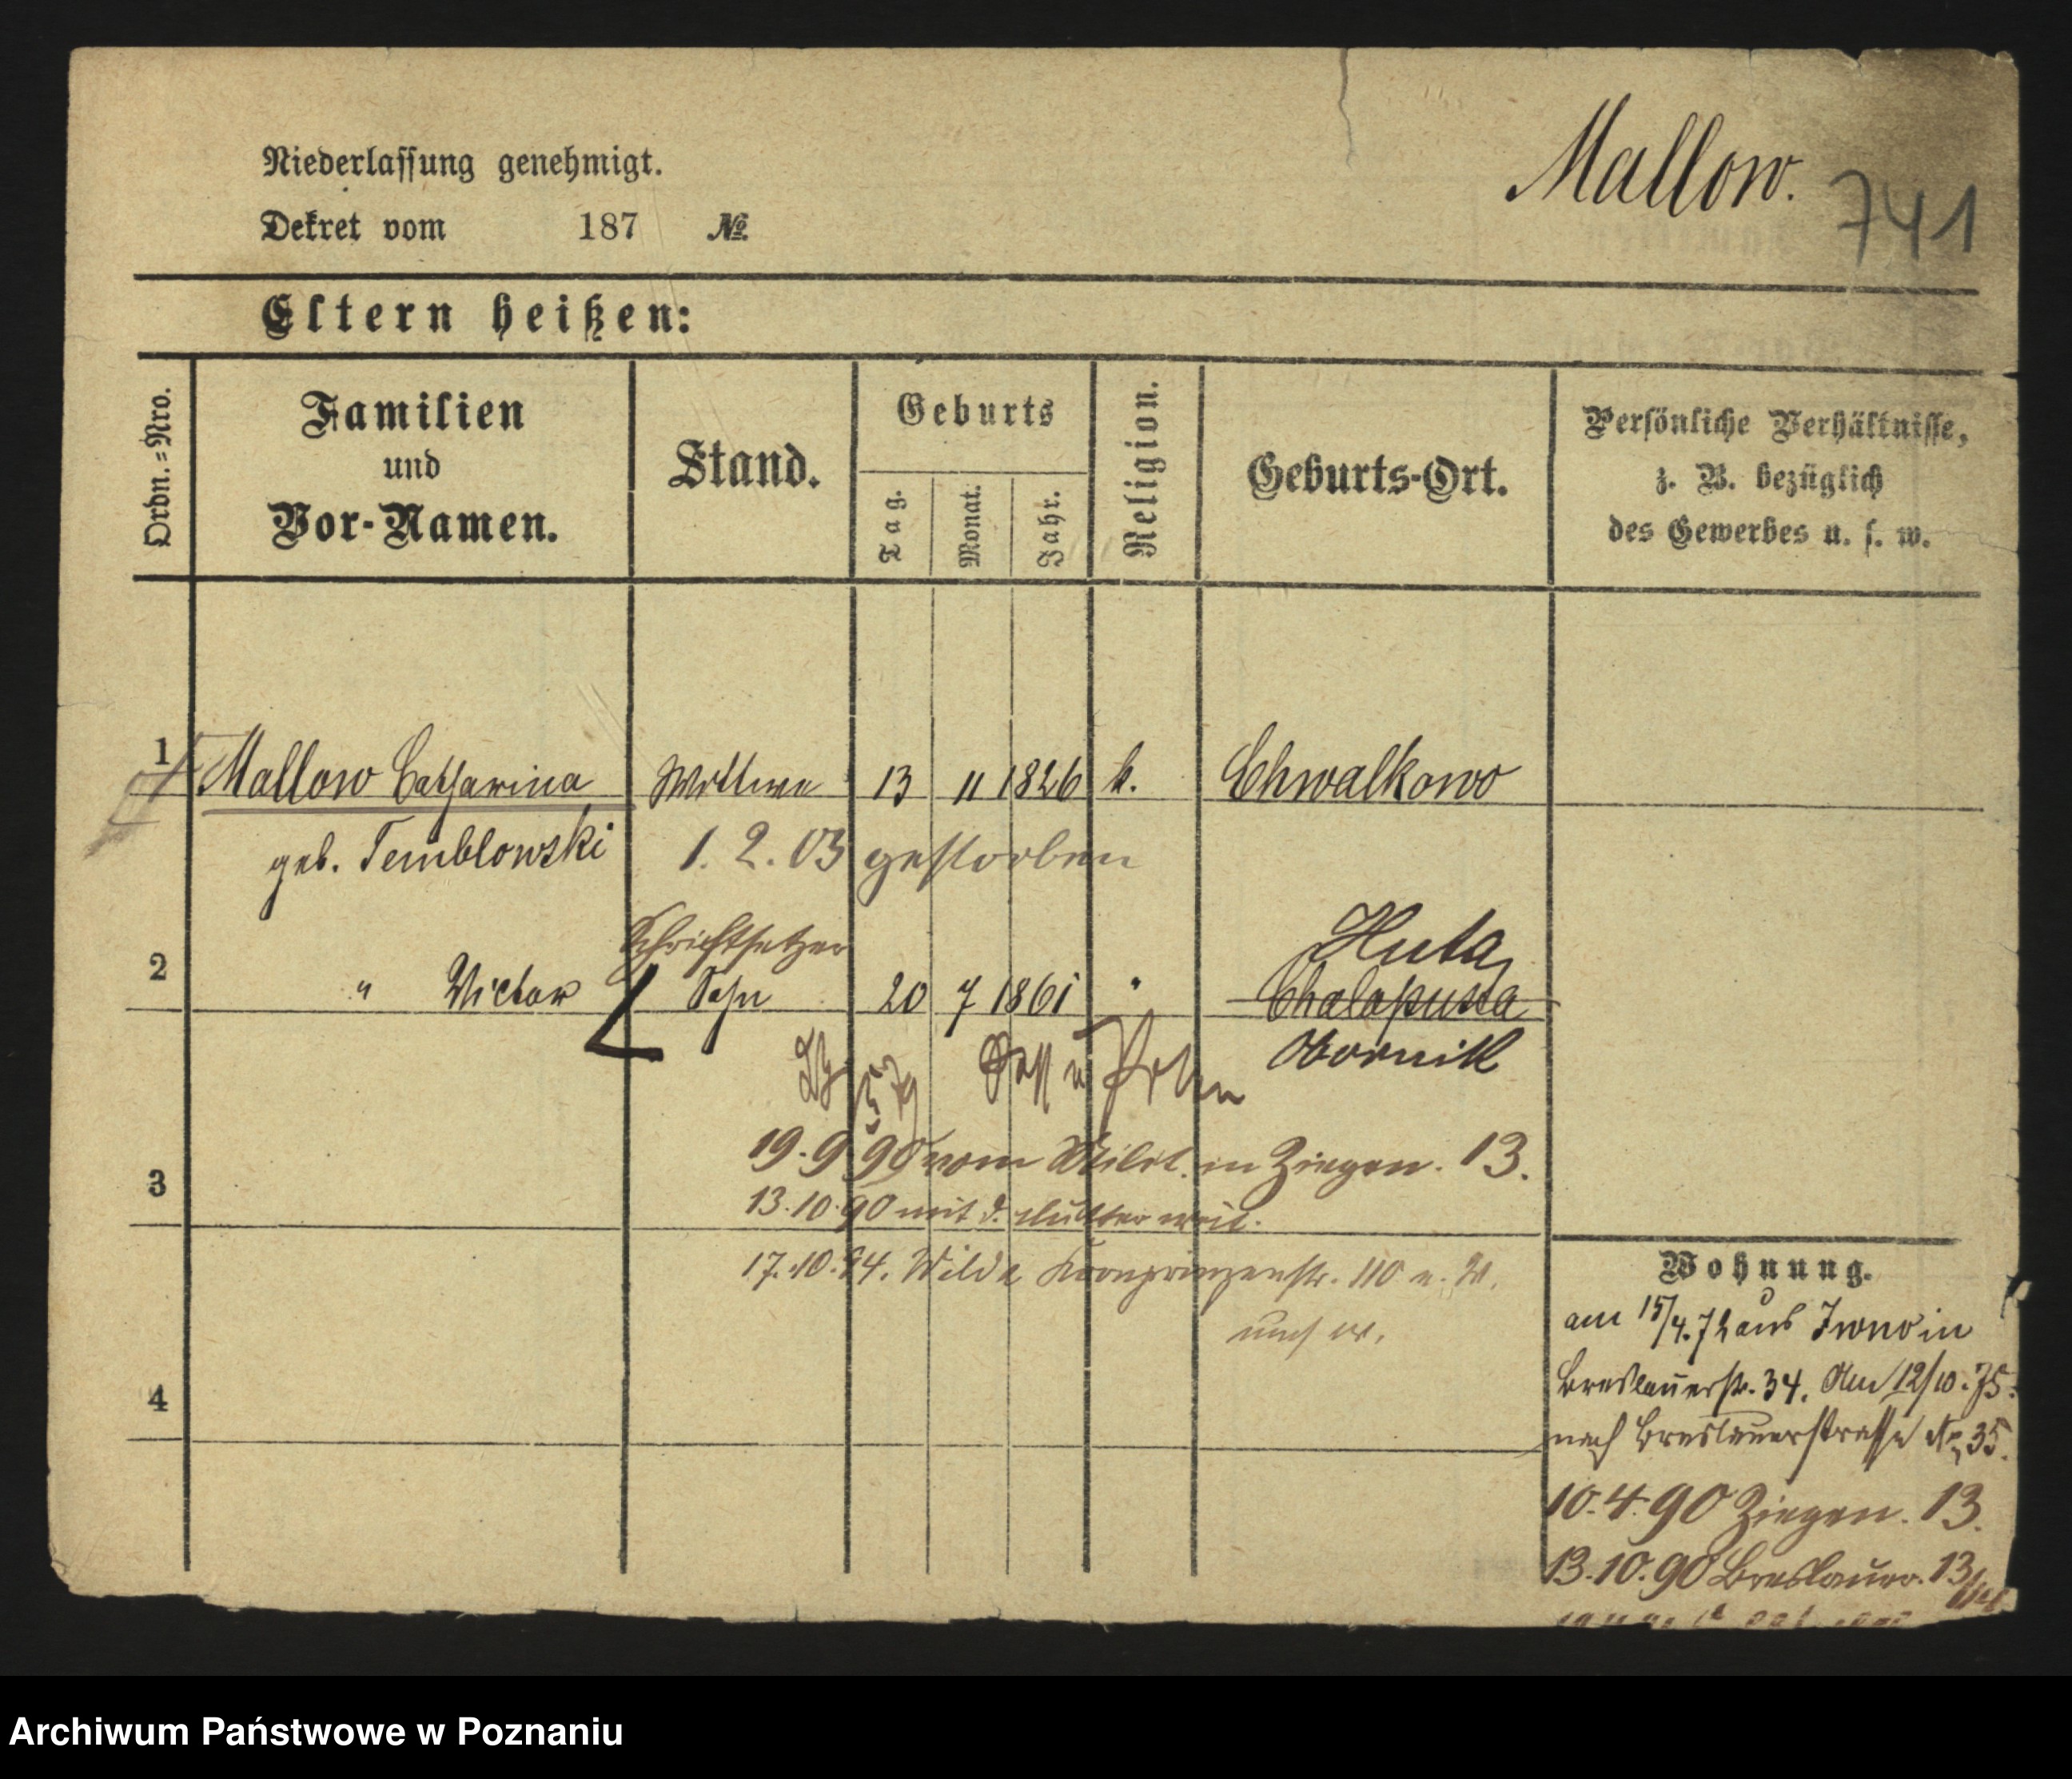 Mallow. 741
Niederlassung genehmigt.
Dekret vom 187 №
Eltern heißen:
Ordn.=Nro.
Familien
und
Vor-Namen.
Stand.
Geburts
Tag.
Monat.
Jahr.
Religion.
Geburts-Ort.
Persönliche Verhältnisse,
z. B. bezüglich
des Gewerbes u. s. w.
1 Mallow Catharina Wittwe 13 11 1826 k. Chwalkowo
geb. Temblowski 1. 2. 03 gestorben
Schriftsetzer Huta
2 " Victor Sohn 20 7 1861 " Chalapuska
Obornik
19. 9 90 vom Milit. in Ziegen. 13.
3
13. 10. 90 mit d. Mutter
17. 10. 94. Wilda Kronprinzenstr. 110
Wohnung.
am 15/4. 72 aus Iwno in
Breslauerstr. 34. Am 12/10. 75.
4 nach Breslauerstrasse No 35.
10. 4. 90 Ziegen. 13.
13. 10. 90 Breslauer. 13
Archiwum Państwowe w Poznaniu